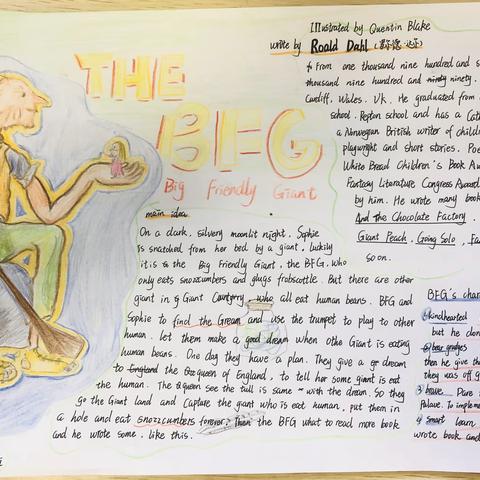 THE
BFG
Big Friendly Giant
Illustrated by Quentin Blake
wrote by Roald Dahl
From one thousand nine hundred and s
thousand nine hundred and ninty ninety.
Cardiff, Wales. UK. He graduated from
school. Repton school and has a Cath
a Norwegian British writer of childre
playwright and short stories. Poe
White Bread Children's Book Awa
Fantasy Literature Congress Award
by him. He wrote many book
And the Chocolate Factory.
Giant Peach, Going Solo, Fa
so on.
main idea
On a dark, silvery moonlit night, Sophie
is snatched from her bed by a giant, luckily
it is the Big Friendly Giant, the BFG, who
only eats snozzcumbers and glugs frobscottle. But there are other
giant in Giant Country, who all eat human beans. BFG and
Sophie to find the Gream and use the trumpet to play to other
human. let them make a good dream when othe Giant is eating
human beans. One day they have a plan. They give a dream
to England the queen of England, to tell her some giant is eat
the human. The Queen see the tull is same with the dream. So they
go the Giant land and Capture the giant who is eat human, put them in
a hole and eat snozzcumbers forever. Then the BFG what to read more book
and he wrote some, like this.
BFG's char
① kindhearted
but he don
② bear grudges
then he give the
they was off g
③ brave. Dare
Palave. To impleme
④ smart learn
wrote book and